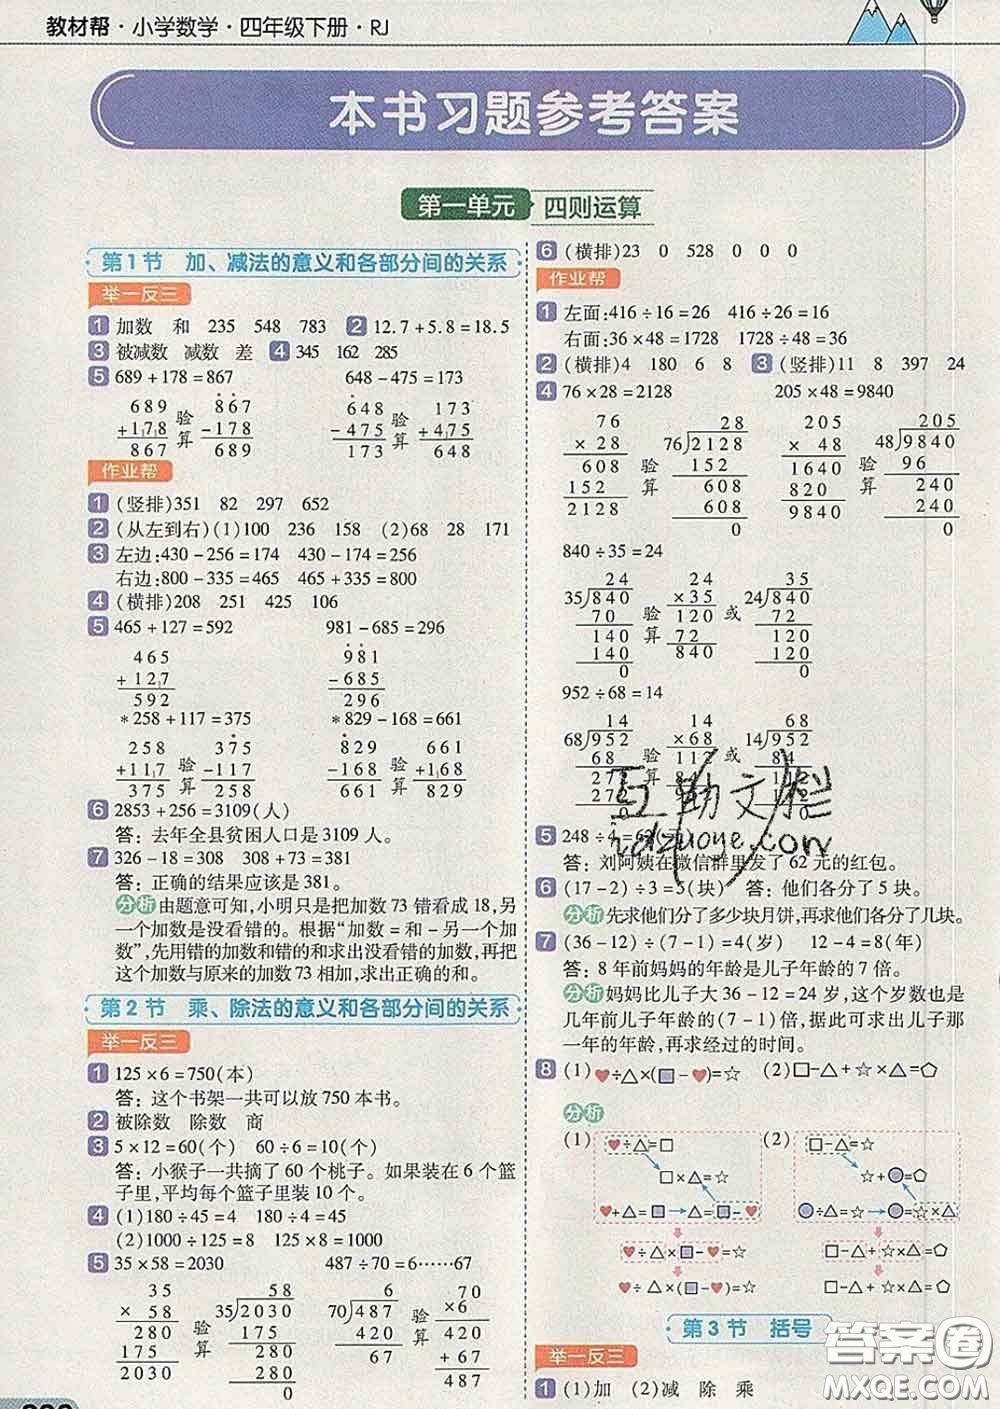 教材帮·小学数学·四年级下册·RJ
本书习题参考答案
第一单元 四则运算
第1节 加、减法的意义和各部分间的关系
举一反三
1 加数 和 235 548 783 2 12.7+5.8=18.5
3 被减数 减数 差 4 345 162 285
5 689+178=867 648-475=173
689 验 867 648 验 173
+178 算 -178 -475 算 +475
867 689 173 648
作业帮
1 (竖排)351 82 297 652
2 (从左到右)(1)100 236 158 (2)68 28 171
3 左边:430-256=174 430-174=256
右边:800-335=465 465+335=800
4 (横排)208 251 425 106
5 465+127=592 981-685=296
465 981
+127 -685
592 296
*258+117=375 *829-168=661
258 验 375 829 验 661
+117 算 -117 -168 算 +168
375 258 661 829
6 2853+256=3109(人)
答:去年全县贫困人口是3109人。
7 326-18=308 308+73=381
答:正确的结果应该是381。
分析 由题意可知,小明只是把加数73错看成18,另
一个加数是没看错的。根据“加数=和-另一个加
数”,先用错的加数和错的和求出没看错的加数,再把
这个加数与原来的加数73相加,求出正确的和。
第2节 乘、除法的意义和各部分间的关系
举一反三
1 125×6=750(本)
答:这个书架一共可以放750本书。
2 被除数 除数 商
3 5×12=60(个) 60÷6=10(个)
答:小猴子一共摘了60个桃子。如果装在6个篮
子里,平均每个篮子里装10个。
4 (1)180÷45=4 180÷4=45
(2)1000÷125=8 125×8=1000
5 35×58=2030 487÷70=6……67
35 58 6 70
×58 验 35)2030 70)487 验 ×6
280 算 175 420 算 420
175 280 67 +67
2030 280 487
0
6 (横排)23 0 528 0 0 0
作业帮
1 左面:416÷16=26 416÷26=16
右面:36×48=1728 1728÷48=36
2 (横排)4 180 6 8 3 (竖排)11 8 397 24
4 76×28=2128 205×48=9840
76 28 205 205
×28 76)2128 ×48 48)9840
608 验 152 1640 验 96
152 算 608 820 算 240
2128 608 9840 240
0 0
840÷35=24
24 24 35
35)840 验 ×35 或 24)840
70 算 120 72
140 72 120
140 840 120
0 0
952÷68=14
14 14 68
68)952 验 ×68 或 14)952
68 算 112 84
272 112
272
0
互助文档
hdzuoye.com
5 248÷4=62(元)
答:刘阿姨在微信群里发了62元的红包。
6 (17-2)÷3=5(块) 答:他们各分了5块。
分析 先求他们分了多少块月饼,再求他们各分了几块。
7 (36-12)÷(7-1)=4(岁) 12-4=8(年)
答:8年前妈妈的年龄是儿子年龄的7倍。
分析 妈妈比儿子大36-12=24岁,这个岁数也是
几年前儿子年龄的(7-1)倍,据此可求出儿子那
一年的年龄,再求经过的时间。
8 (1)♥÷△×(□-♥)=☆ (2)□-△+☆×△=⬠
分析
(1) ♥÷△=□ (2) □-△=☆
□×△=☆ ☆+○=⬠
♥+△=□→△=□-♥ ○÷△=☆→○=☆×△
♥÷△×□-♥=☆ □-△+☆×△=⬠
♥÷△×(□-♥)=☆ □-△+☆×△=⬠
第3节 括号
举一反三
1 (1)加 (2)减 除 乘
答案圈
MXQE.COM